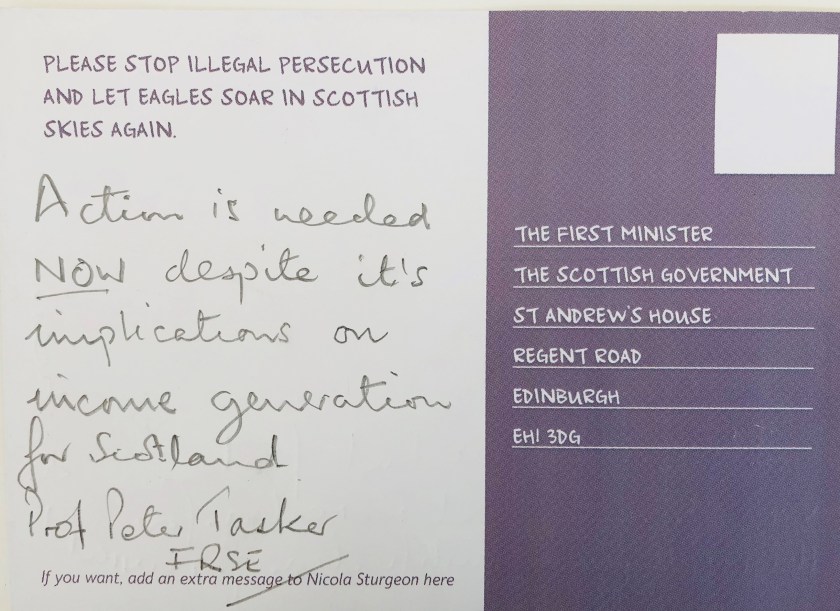 PLEASE STOP ILLEGAL PERSECUTION
AND LET EAGLES SOAR IN SCOTTISH
SKIES AGAIN.
Action is needed
NOW despite it's
implications on
income generation
for Scotland
Prof Peter Tasker
FRSE
If you want, add an extra message to Nicola Sturgeon here
THE FIRST MINISTER
THE SCOTTISH GOVERNMENT
ST ANDREW'S HOUSE
REGENT ROAD
EDINBURGH
EH1 3DG